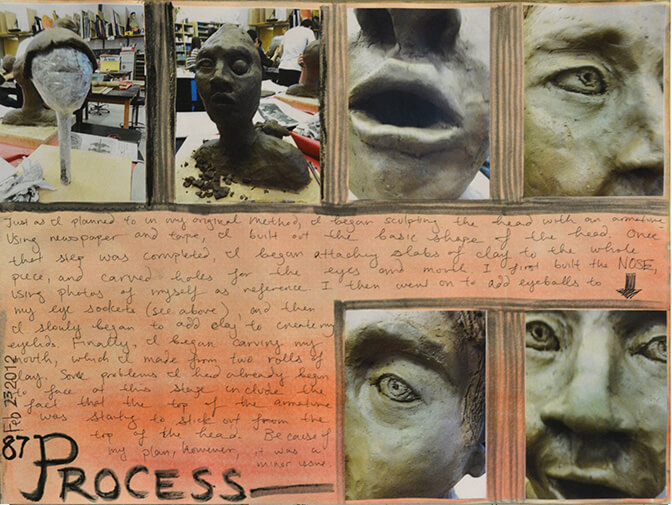 Just as I planned to in my original method, I began sculpting the head with an armature
Using newspaper and tape, I built out the basic shape of the head. Once
that step was completed, I began attaching slabs of clay to the whole
piece, and carved holes for the eyes and mouth I first built the NOSE,
using photos of myself as reference I then went on to add eyeballs to
my eye sockets (see above), and then
I slowly began to add clay to create my
eyelids Finally, I began carving my
mouth, which I made from two rolls of
clay. Some problems I had already begun
to face at this stage include the
fact that the top of the armature
was starting to stick out from the
top of the head. Because of
my plan, however, it was a
minor issue
Feb 23 2012
87
PROCESS